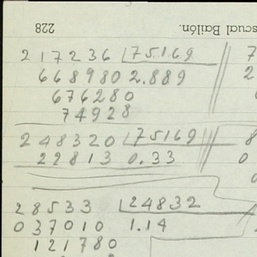 228
scual Bailón.
217236 |75169
668980 2.889
676280
74928
248320 |75169
22813 0.33
28533 |24832
037010 1.14
121780